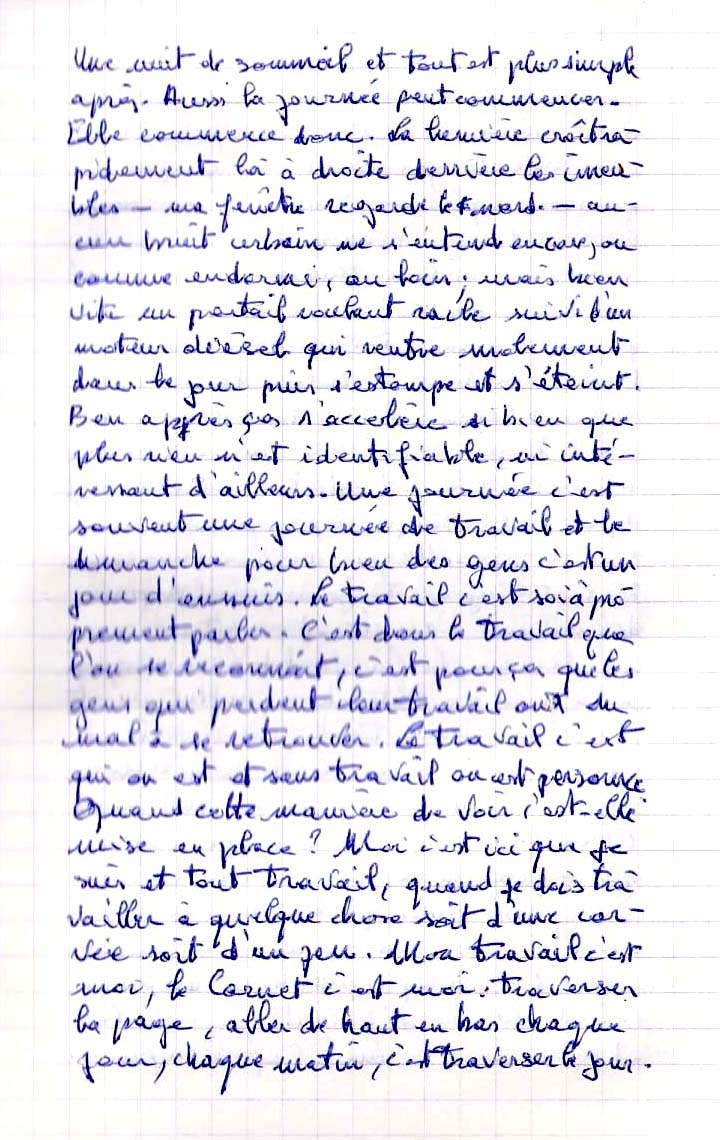 Une nuit de sommeil et tout est plus simple
après. Aussi la journée peut commencer.
Elle commence donc. La lumière croît ra-
pidement là à droite derrière les imeu-
bles — ma fenêtre regarde le nord. — au-
cun bruit urbain ne s'entend encore, ou
comme endormi, au loin ; mais bien
vite un portail roulant racle suivi d'un
moteur diésel qui rentre mollement
dans le jour puis s'estompe et s'éteint.
Ben après ça s'accelère si bien que
plus rien n'est identifiable, ni inté-
ressant d'ailleurs. Une journée c'est
souvent une journée de travail et le
dimanche pour bien des gens c'est un
jour d'ennuis. Le travail c'est soi à pro
prement parler. C'est dans le travail que
l'on se reconnaît, c'est pour ça que les
gens qui perdent leur travail ont du
mal à se retrouver. Le travail c'est
qui on est et sans travail on est personne
Quand cette manière de voir s'est-elle
mise en place ? Moi c'est ici que je
suis et tout travail, quand je dois tra
vailler à quelque chose soit d'une cor-
vée soit d'un jeu. Mon travail c'est
moi, le Carnet c'est moi : traverser
la page, aller de haut en bas chaque
jour, chaque matin, c'est traverser le jour.